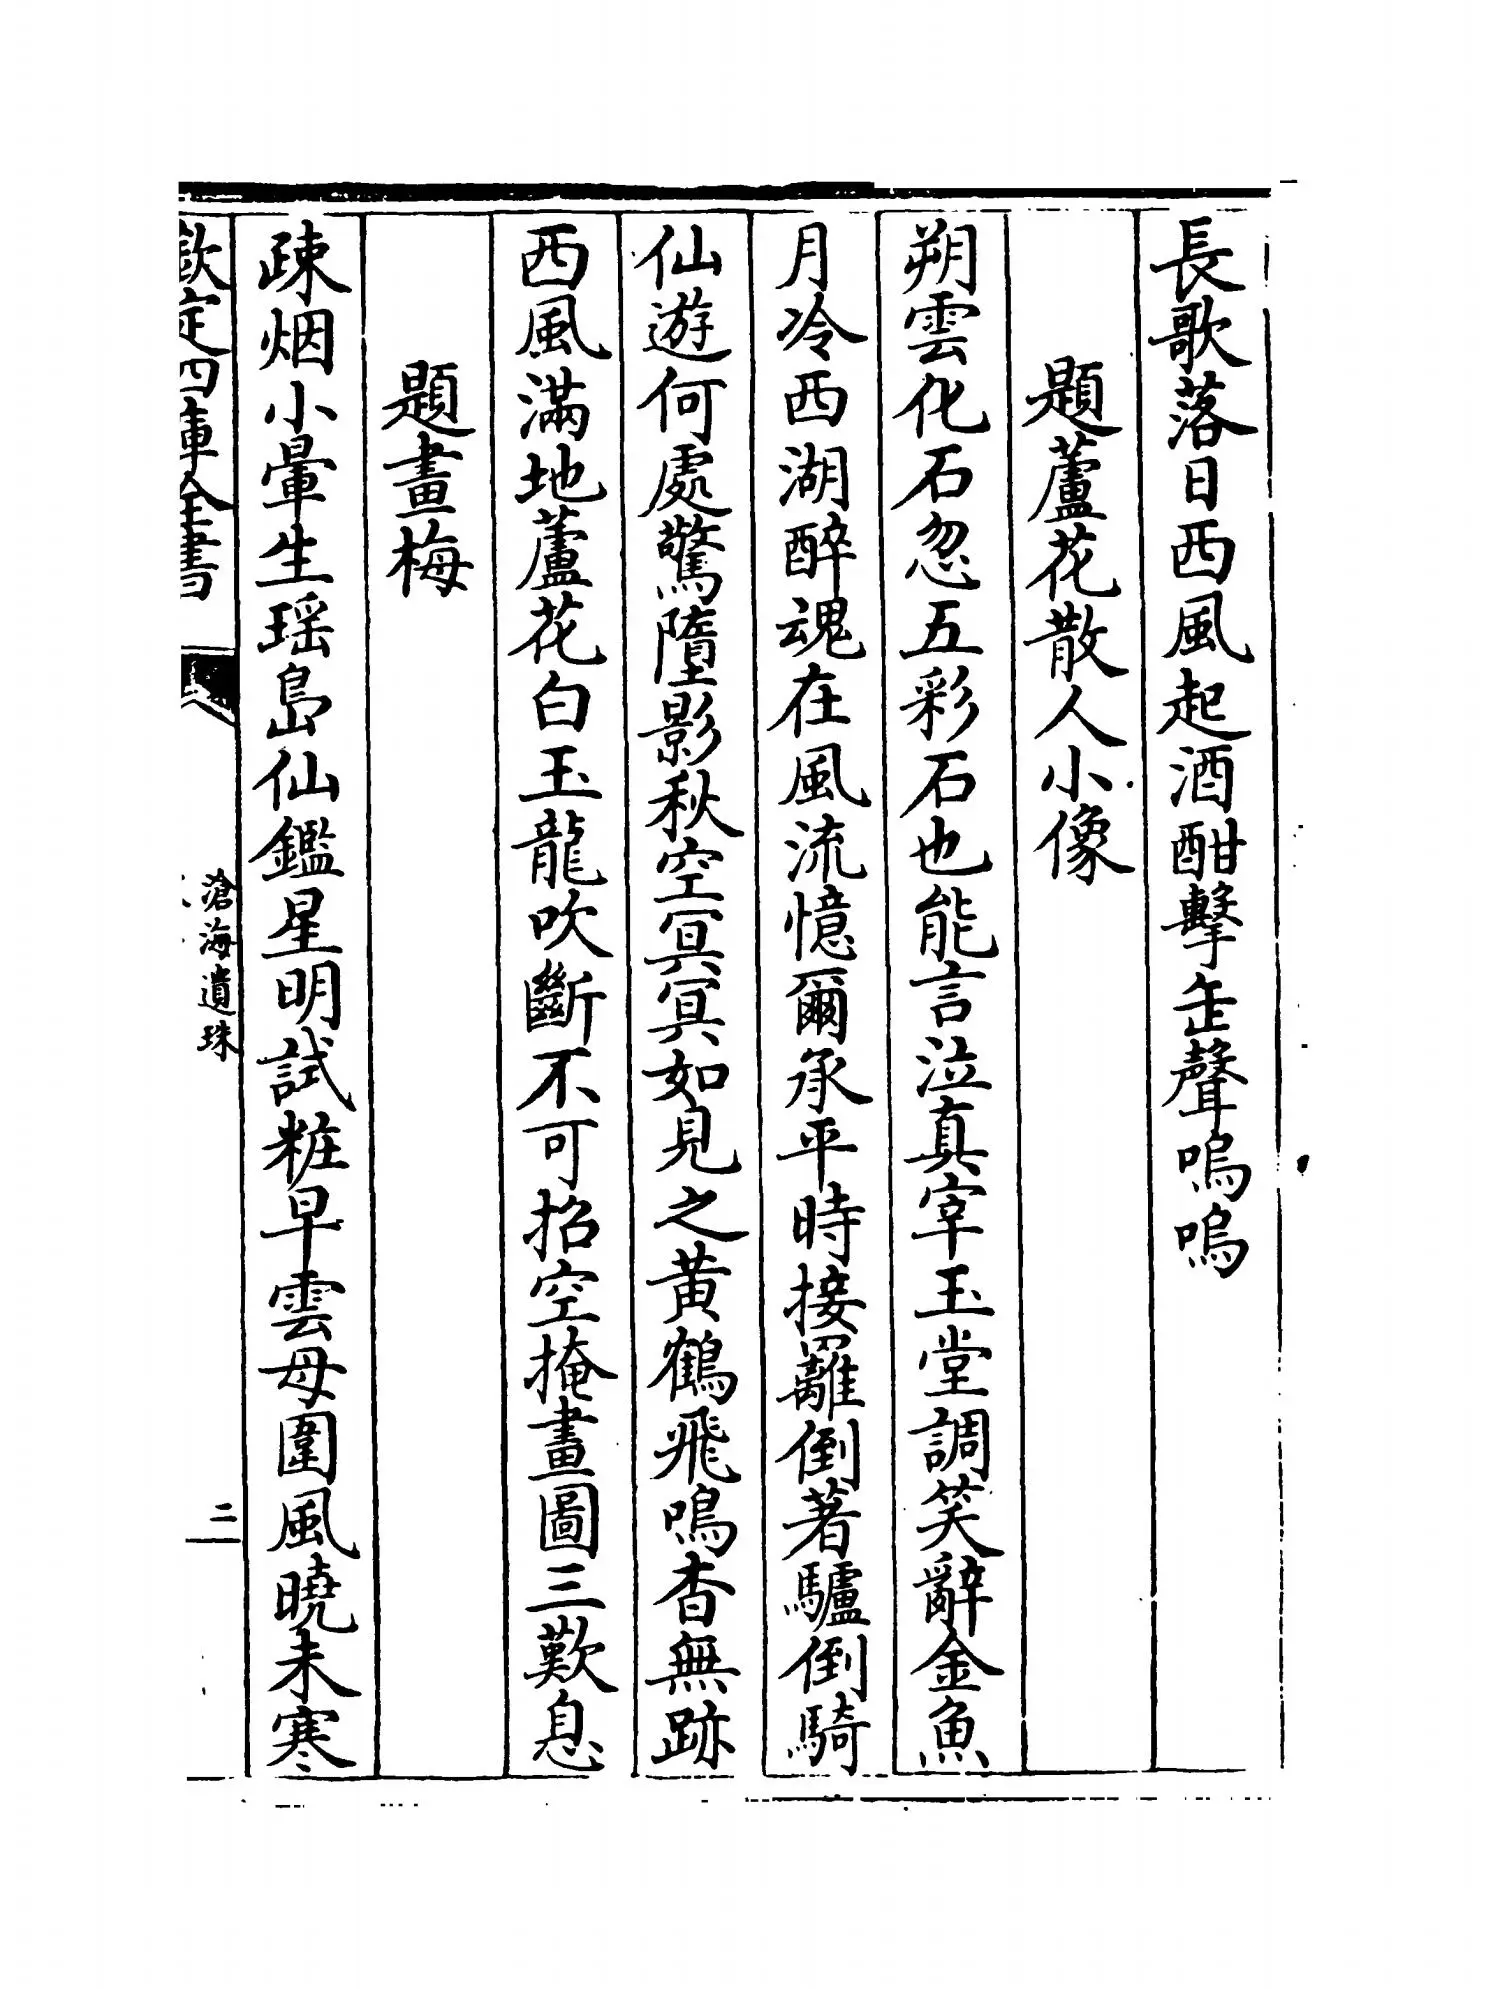 長歌落日西風起酒酣擊缶聲嗚嗚
題蘆花散人小像
朔雲化石忽五彩石也能言泣真宰玉堂調笑辭金魚
月冷西湖醉魂在風流憶爾承平時接䍦倒著驢倒騎
仙遊何處驚墮影秋空冥冥如見之黄鶴飛鳴杳無跡
西風滿地蘆花白玉龍吹斷不可招空掩畫圖三歎息
題畫梅
疎烟小暈生瑶島仙鑑星明試粧早雲母圍風曉未寒
欽定四庫全書
滄海遺珠
二